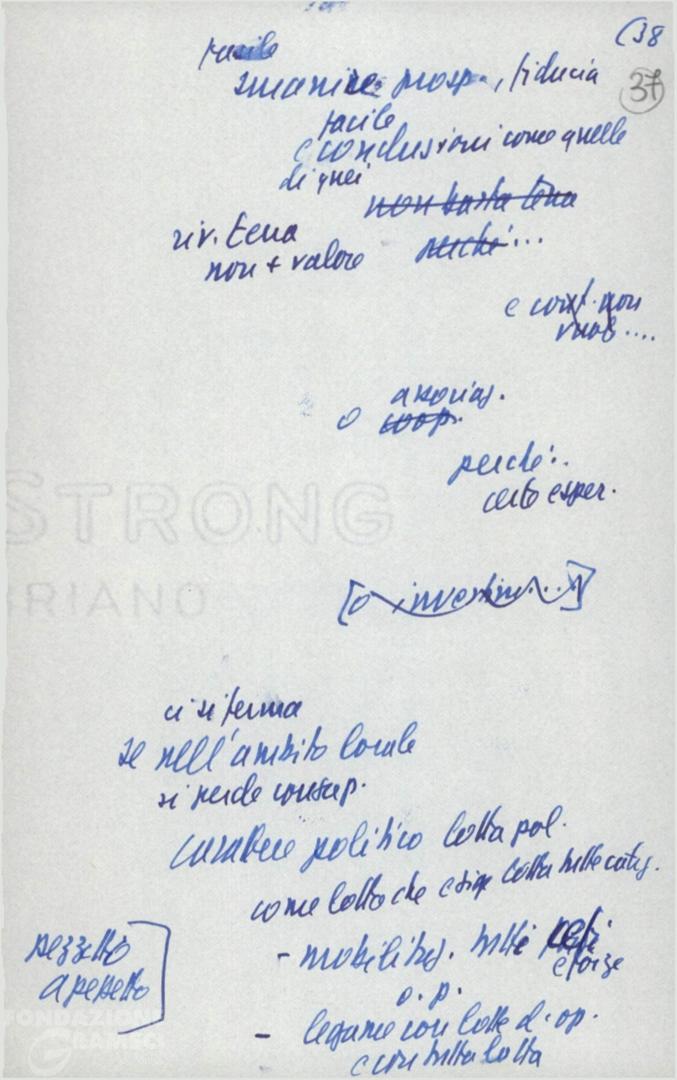 (38
37
facile
smanie prosp., fiducia
facile
e conclusioni come quelle
di quei
non basta terra
riv. terra
non + valore perché...
e cont. non
vuol ....
associaz.
o coop.
perché..
certo esper.
STRONG
BRIANO
[o investim...]
ci si ferma
se nell'ambito locale
si perde consap.
carattere politico lotta pol.
come lotta che esige lotta tutte categ.
- mobilitaz. tutti ceti
e forze
pezzetto
a pezzetto
o. p.
- legame con lotte d. op.
e con tutta lotta
FONDAZIONE
GRAMSCI